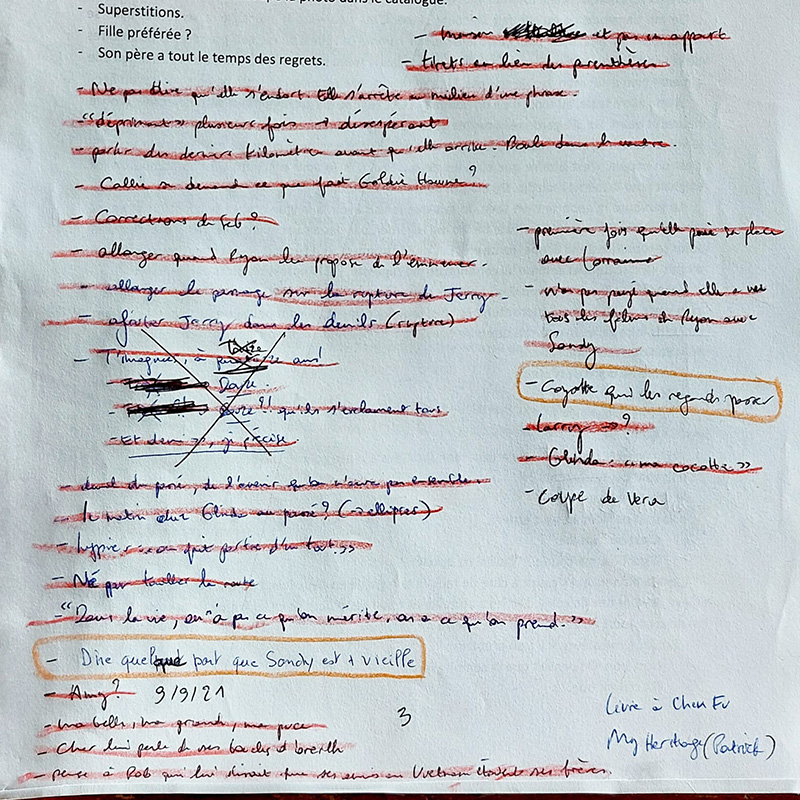 la photo dans le catalogue.
- Superstitions.
- Fille préférée ?
- Son père a tout le temps des regrets.
- maison et pas un appart
- tirets au lieu des parenthèses
- Ne pas dire qu'elle s'endort. Elle s'arrête au milieu d'une phrase.
- "déprimant" plusieurs fois → désespérant
- parler des derniers kilomètres avant qu'elle arrive. Boule dans le ventre.
- Callie se demande ce que fait Goldie Hawn ?
- Corrections de Seb ?
- allonger quand Ryan lui propose de l'emmener.
- allonger le passage sur la rupture de Jerry.
- ajouter Jerry dans les deuils (rupture)
- T'imagines, à ans !
- Douze.
- Douze !! qu'ils s'exclament tous
- Et demi », je précise.
- deuil du passé, de l'avenir qu'on n'aura pas ensemble.
- le matin chez Glinda au passé ? (→ ellipses)
- hippies : on fait partie d'un tout. »
- Ne pas tailler la route
- "Dans la vie, on n'a pas ce qu'on mérite, on a ce qu'on prend. »
- Dire quelque part que Sandy est + vieille
- Amy ? 9/9/21
- ma belle, ma grande, ma puce
- Cher lui parle de ses boucles d'oreille
- pense à Rob qui lui disait que ses amis au Vietnam étaient ses frères.
- première fois qu'elle passe sa place
avec Lorraine
- n'a pas pigé quand elle a vu
tous les films de Ryan avec
Sandy
- Coyotte qui les regarde passer
- Larry → ?
- Glinda : « ma cocotte »
- Coupe de Vera
3
Livre à Chen Fu
My Heritage (Patrick)